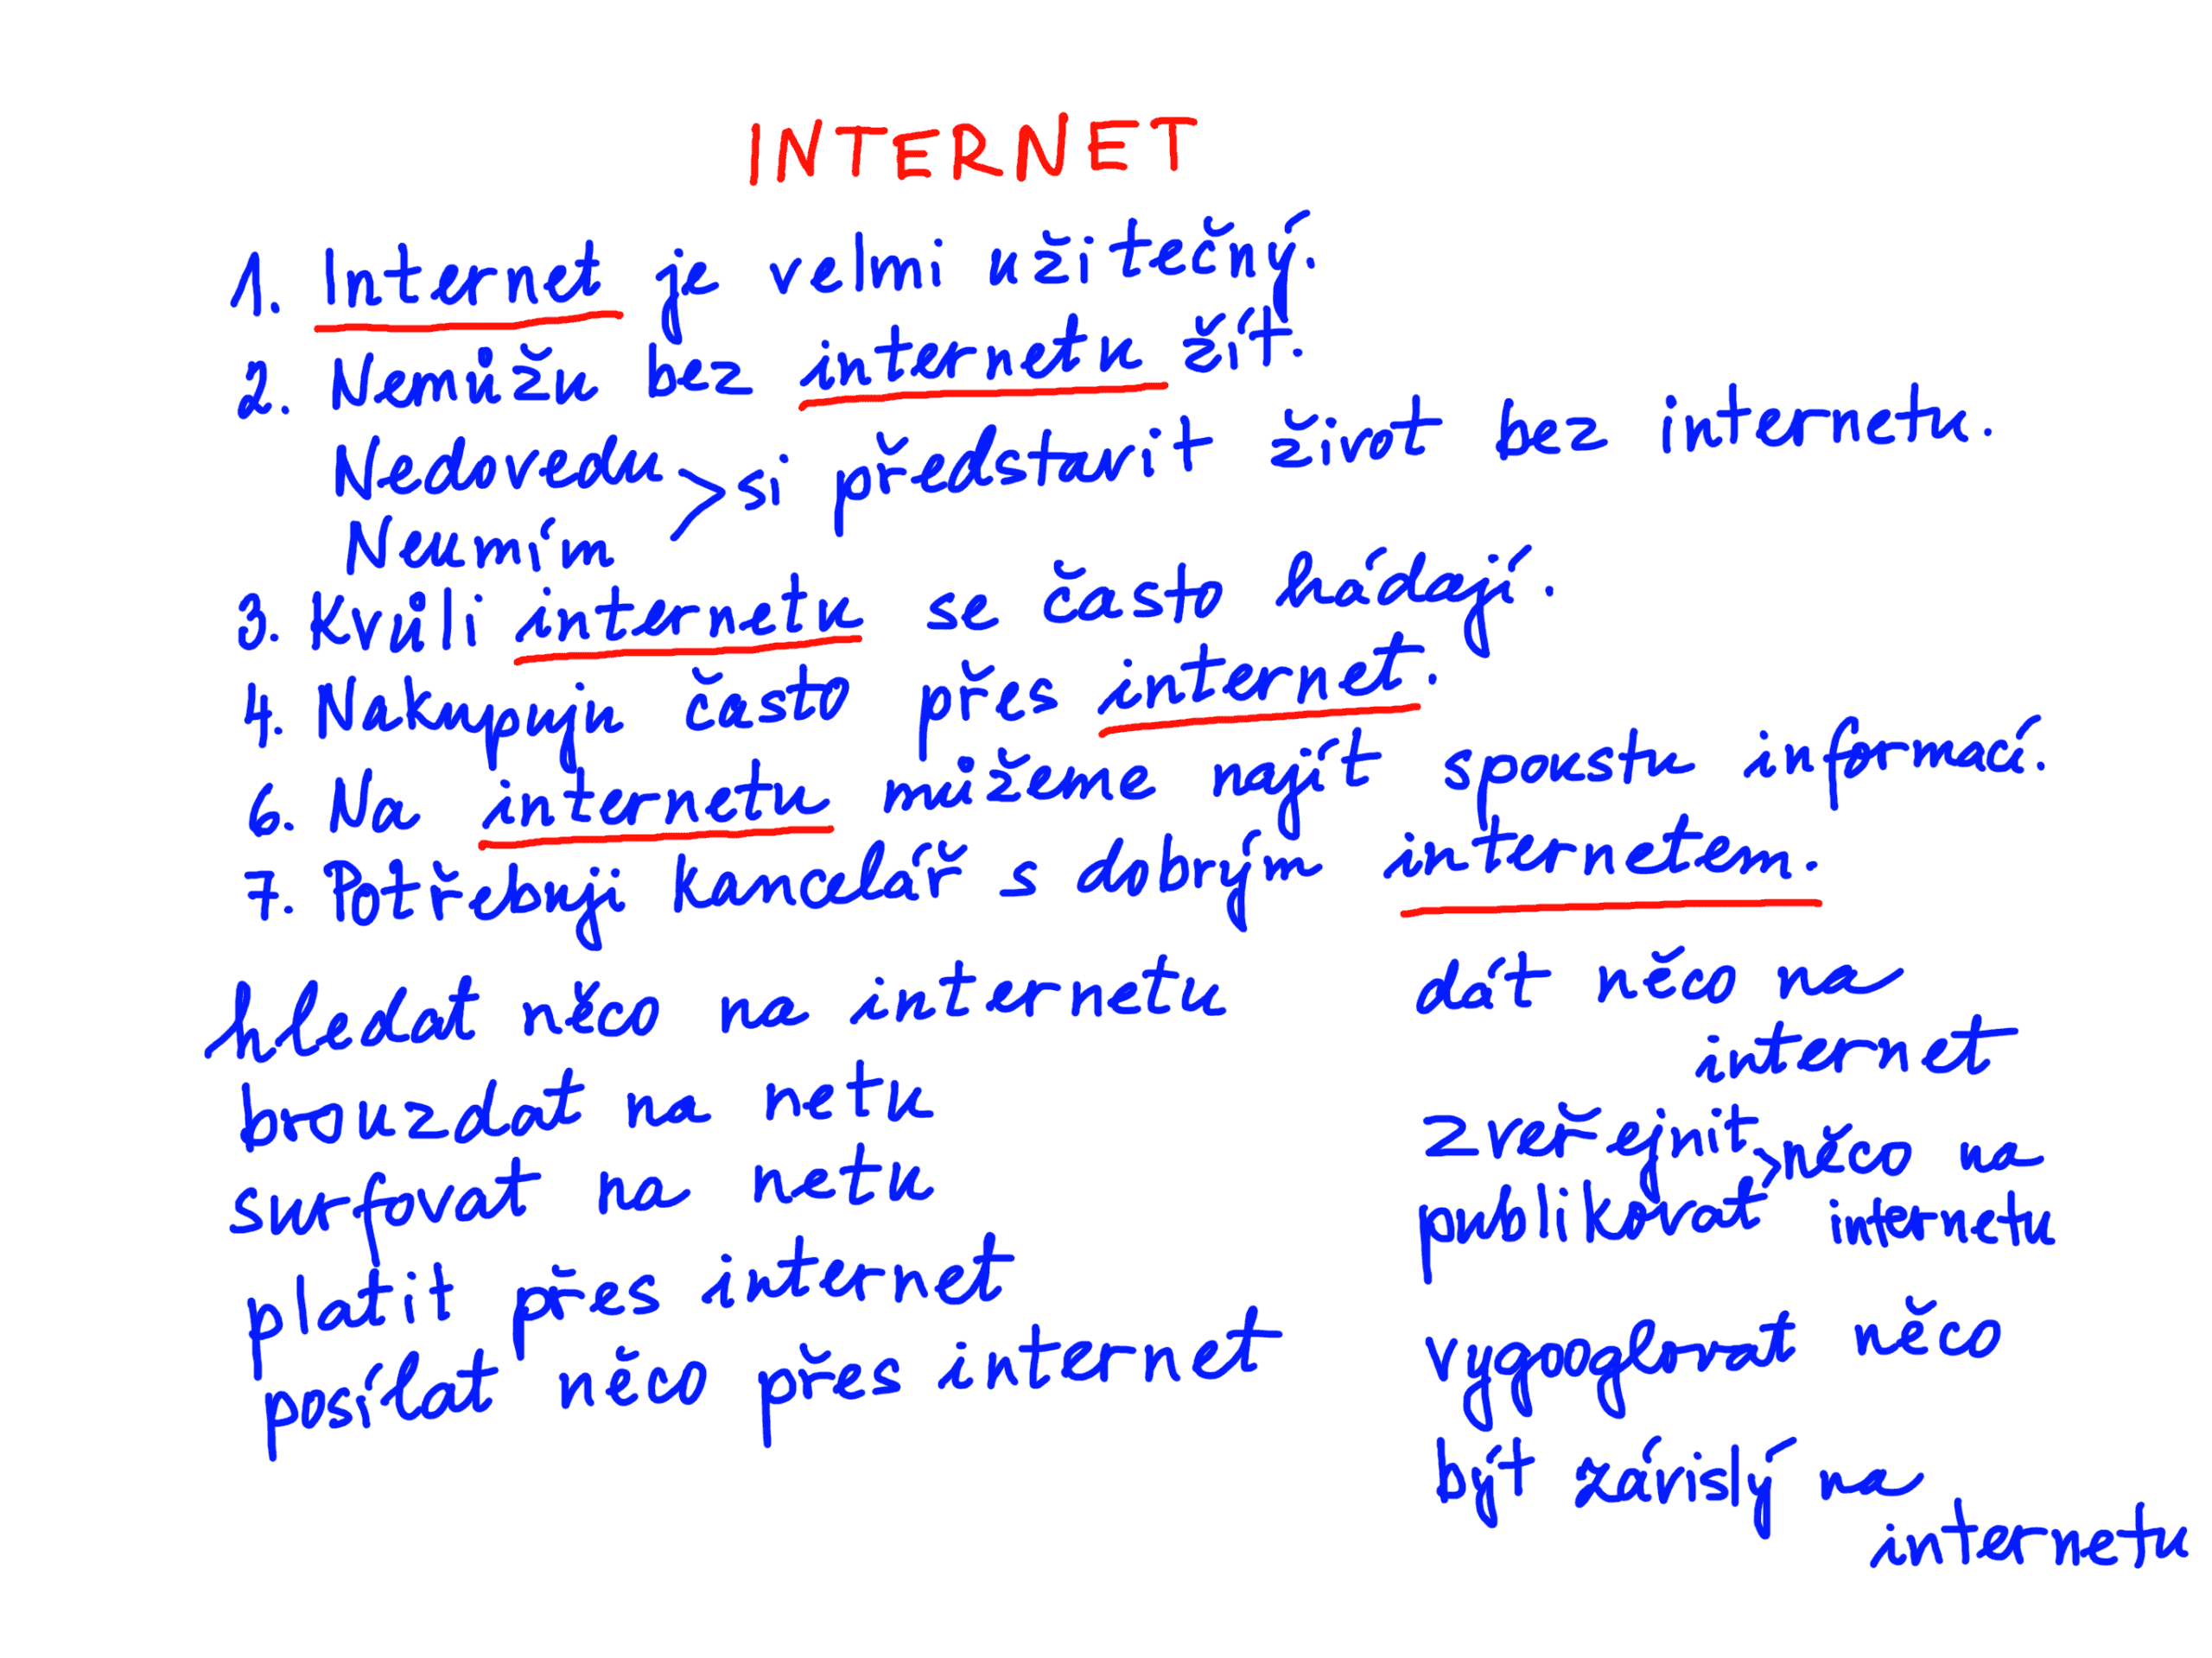 INTERNET
1. Internet je velmi užitečný.
2. Nemůžu bez internetu žít.
Nedovedu > si představit život bez internetu.
Neumím
3. Kvůli internetu se často hádají.
4. Nakupuju často přes internet.
6. Na internetu můžeme najít spoustu informací.
7. Potřebuji kancelář s dobrým internetem.
hledat něco na internetu
brouzdat na netu
surfovat na netu
platit přes internet
posílat něco přes internet
dát něco na
internet
zveřejnit > něco na
publikovat internetu
vygooglovat něco
být závislý na
internetu